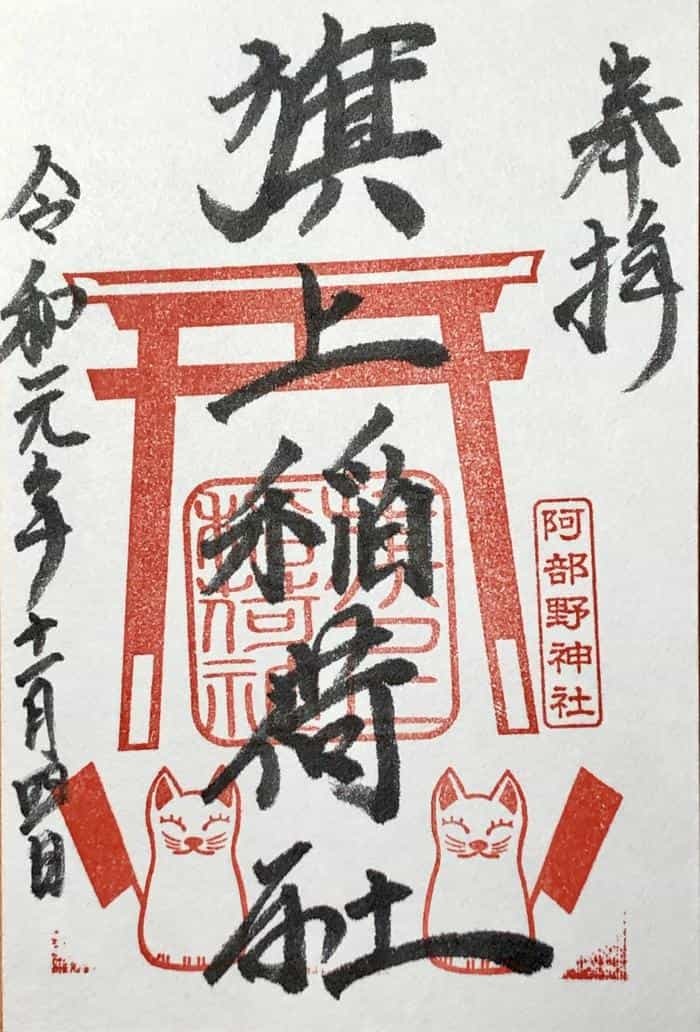 奉拝
阿部野神社
旗上稲荷社
旗上
稲荷社
令和元年十一月四日